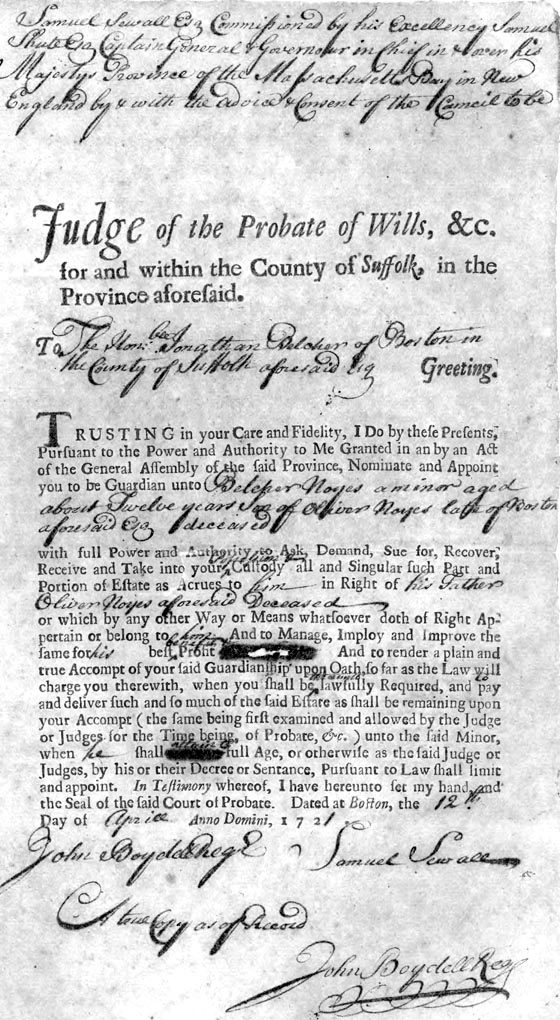 Samuel Sewall Esq Commissioned by his Excellency Samuel
Shute Esq Captain General & Governour in Chief in & over his
Majestys Province of the Massachusetts Bay in New
England by & with the advice & Consent of the Council to be
Judge of the Probate of Wills, &c.
for and within the County of Suffolk, in the
Province aforesaid.
To The Honble Jonathan Belcher of Boston in
the County of Suffolk aforesaid Esq Greeting.
TRUSTING in your Care and Fidelity, I Do by these Presents,
Pursuant to the Power and Authority to Me Granted in an by an Act
of the General Assembly of the said Province, Nominate and Appoint
you to be Guardian unto Belcher Noyes a minor aged
about Twelve years Son of Oliver Noyes late of Boston
aforesaid Esq deceased
with full Power and Authority to Ask, Demand, Sue for, Recover,
Receive and Take into your Custody all and Singular such Part and
Portion of Estate as Acrues to him in Right of his Father
Oliver Noyes aforesaid Deceased
or which by any other Way or Means whatsoever doth of Right Ap-
pertain or belong to him And to Manage, Imploy and Improve the
same for his best Profit And to render a plain and
true Accompt of your said Guardianship upon Oath, so far as the Law will
charge you therewith, when you shall be lawfully Required, and pay
and deliver such and so much of the said Estate as shall be remaining upon
your Accompt (the same being first examined and allowed by the Judge
or Judges for the Time being, of Probate, &c.) unto the said Minor,
when he shall full Age, or otherwise as the said Judge or
Judges, by his or their Decree or Sentance, Pursuant to Law shall limit
and appoint. In Testimony whereof, I have hereunto set my hand and
the Seal of the said Court of Probate. Dated at Boston, the 12th
Day of April Anno Domini, 1721
John Boydell Regr Samuel Sewall
A true Copy as of Record
John Boydell Regr